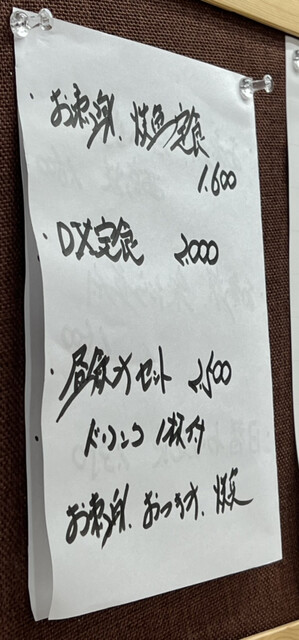 ・お刺身、焼魚定食
1.600
・DX定食 2.000
・昼飲みセット 2.500
ドリンク1杯付
お刺身、おつまみ、焼魚